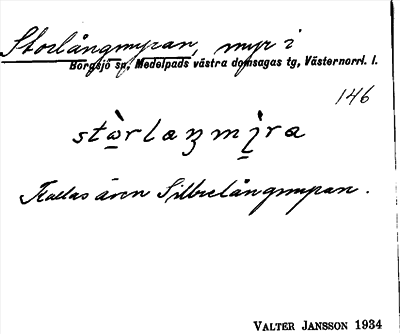 Storlångmyran, myr i
Borgsjö sn, Medelpads västra domsagas tg, Västernorrl. l.
146
stὼrlaŋmỳra
Kallas även Sillrelångmyran.
VALTER JANSSON 1934